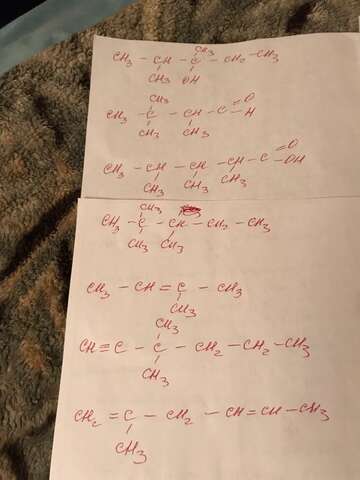 CH₃
CH₃ – CH – C – CH₂ – CH₃
CH₃ OH
CH₃ O
CH₃ – C – CH – C H
CH₃ CH₃
O
CH₃ – CH – CH – CH – C OH
CH₃ CH₃ CH₃
CH₃
CH₃ – C – CH – CH₂ – CH₃
CH₃ CH₃
CH₃ – CH = C – CH₃
CH₃
CH₃
CH ≡ C – C – CH₂ – CH₂ – CH₃
CH₃
CH₂ = C – CH₂ – CH = CH – CH₃
CH₃